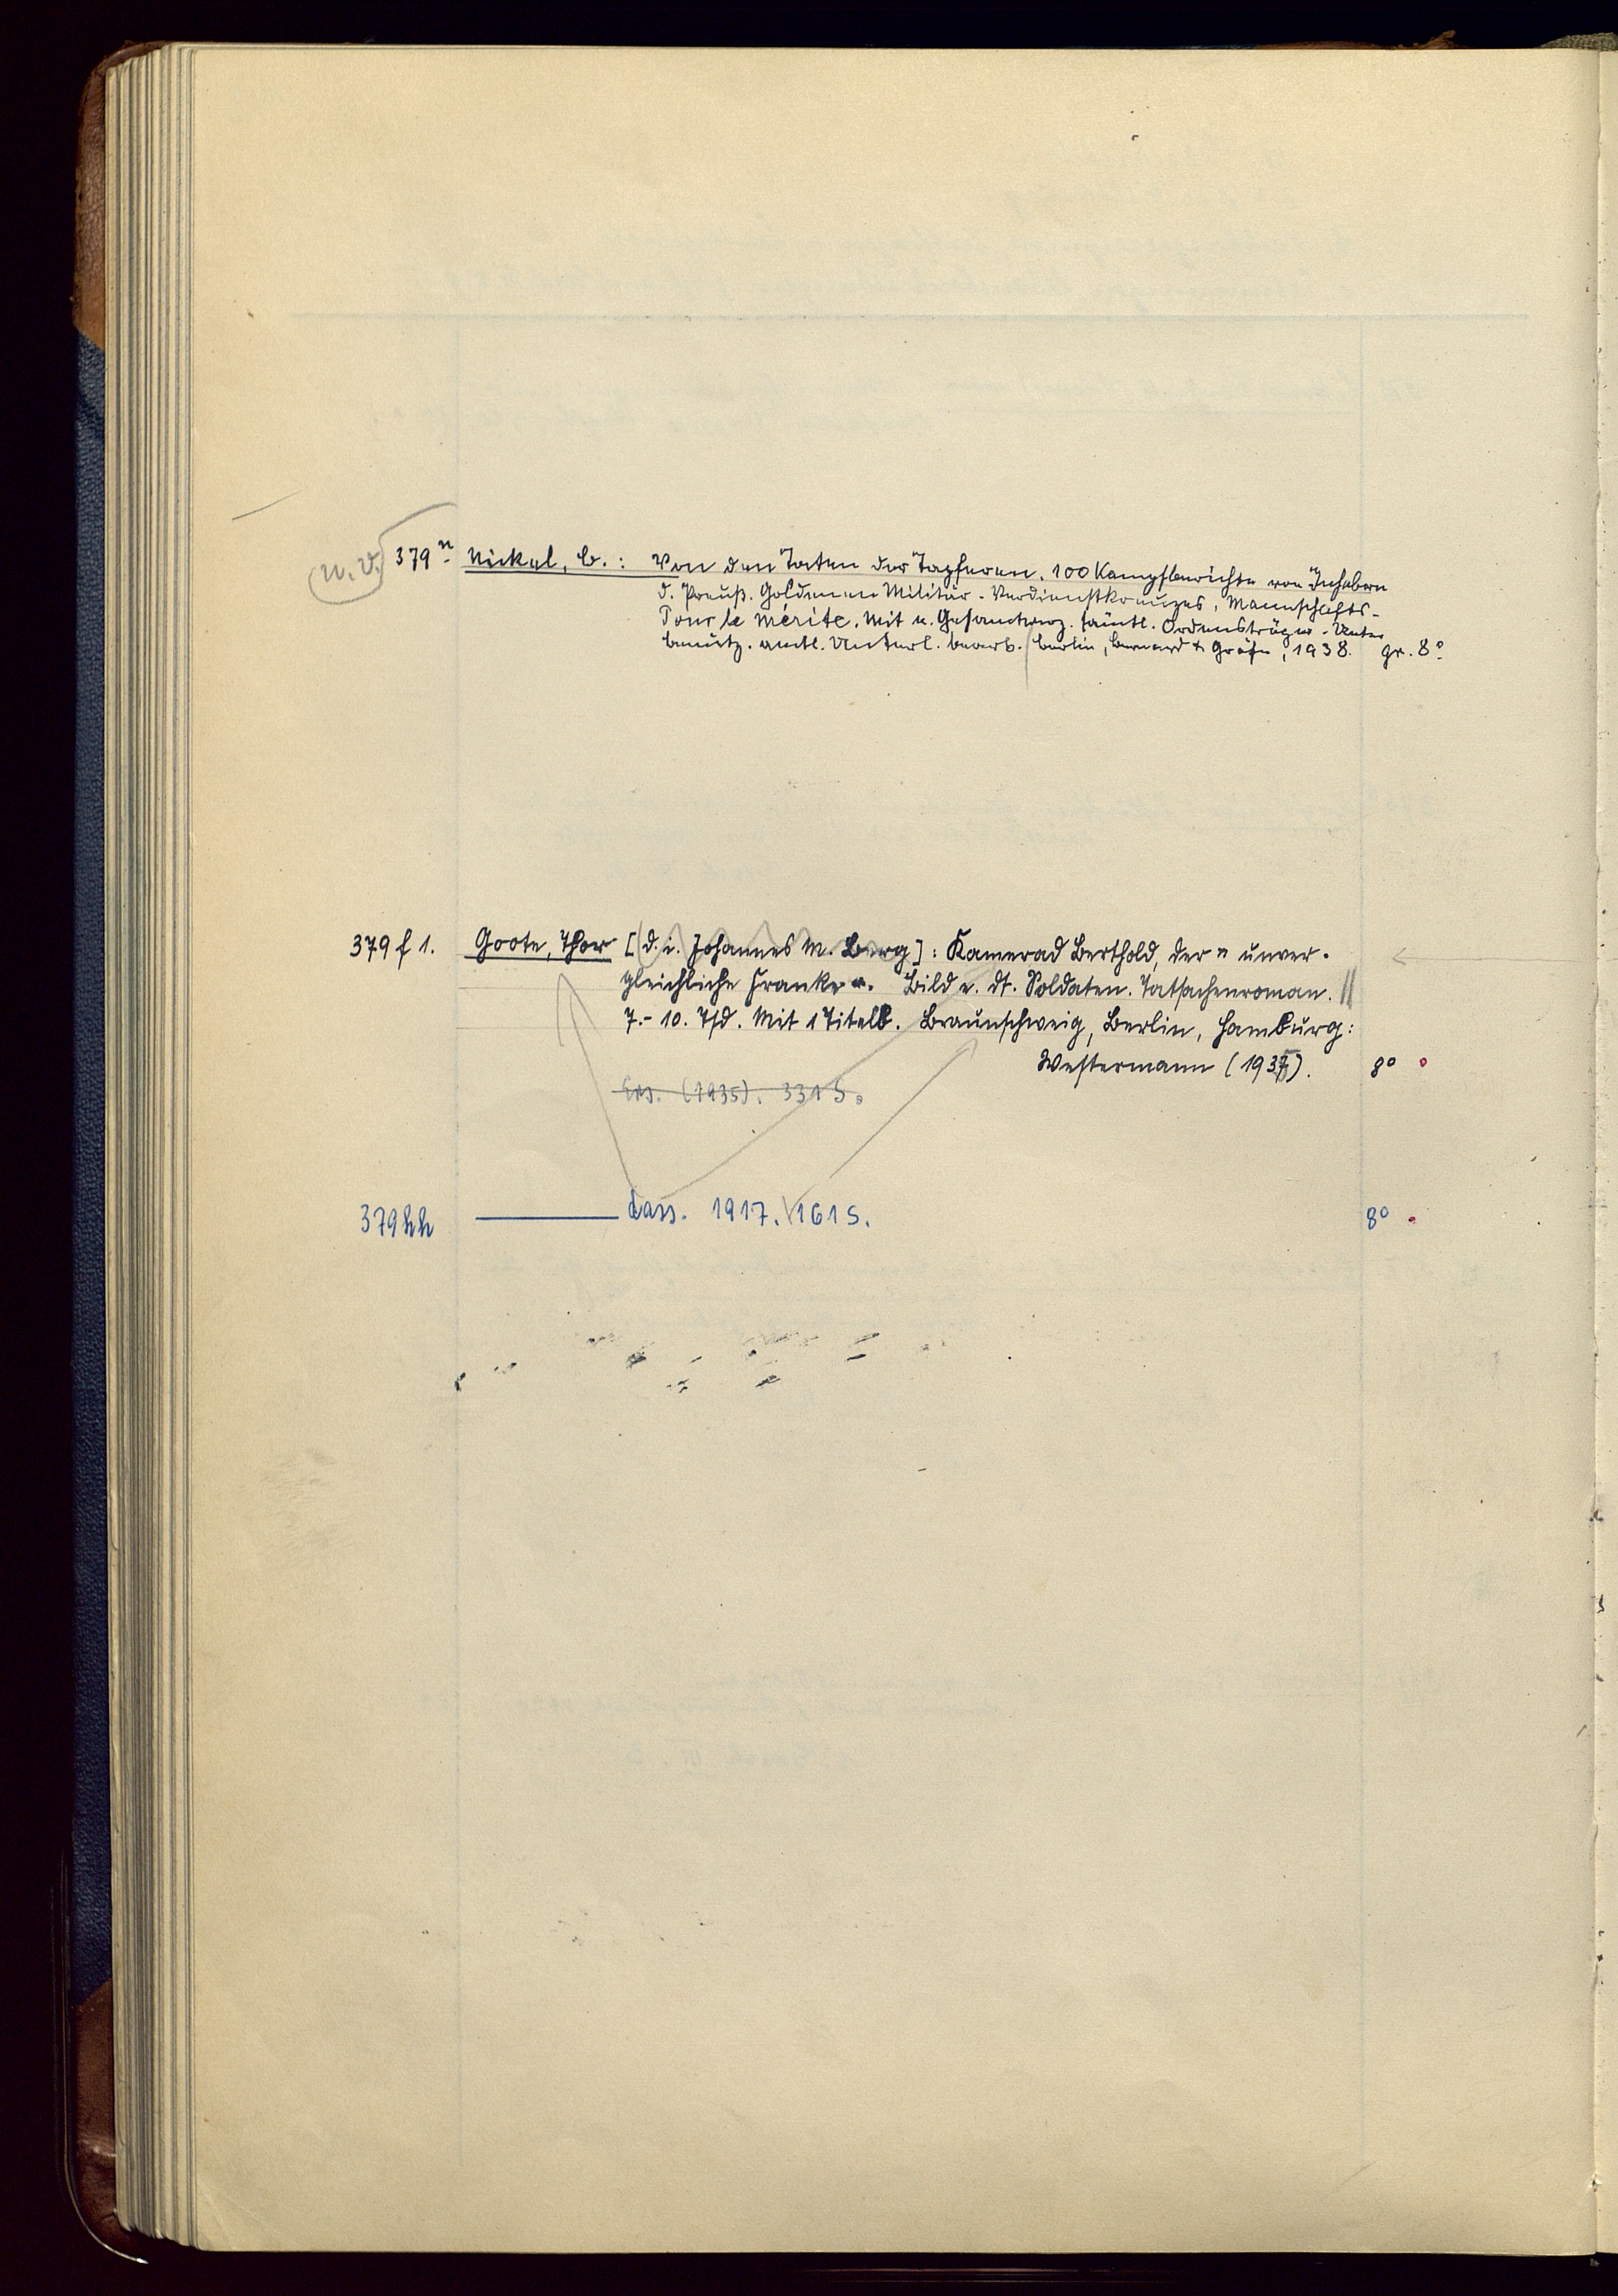 (w. V.) 379ⁿ Nickel, B.: Von den Taten der Tapferen. 100 Kampfberichte von Inhabern
d. Preuß. Goldenen Militär-Verdienstkreuzes, Mannschafts-
Pour le mérite. Mit e. Gesamtverz. sämtl. Ordensträger. Unter
Benütz. amtl. Unterl. bearb. Berlin, Bernard & Gräfe, 1938. gr. 8°
379 f 1. Goote, Thor [d. i. Johannes M. Berg]: Kamerad Berthold, der "unver-
gleichliche Franke". Bild e. dt. Soldaten. Tatsachenroman.
7.-10. Tsd. Mit 1 Titelb. Braunschweig, Berlin, Hamburg:
Westermann (1937). 8°
Ers. (1935). 331 S.
379hh dass. 1917. 161 S. 8°